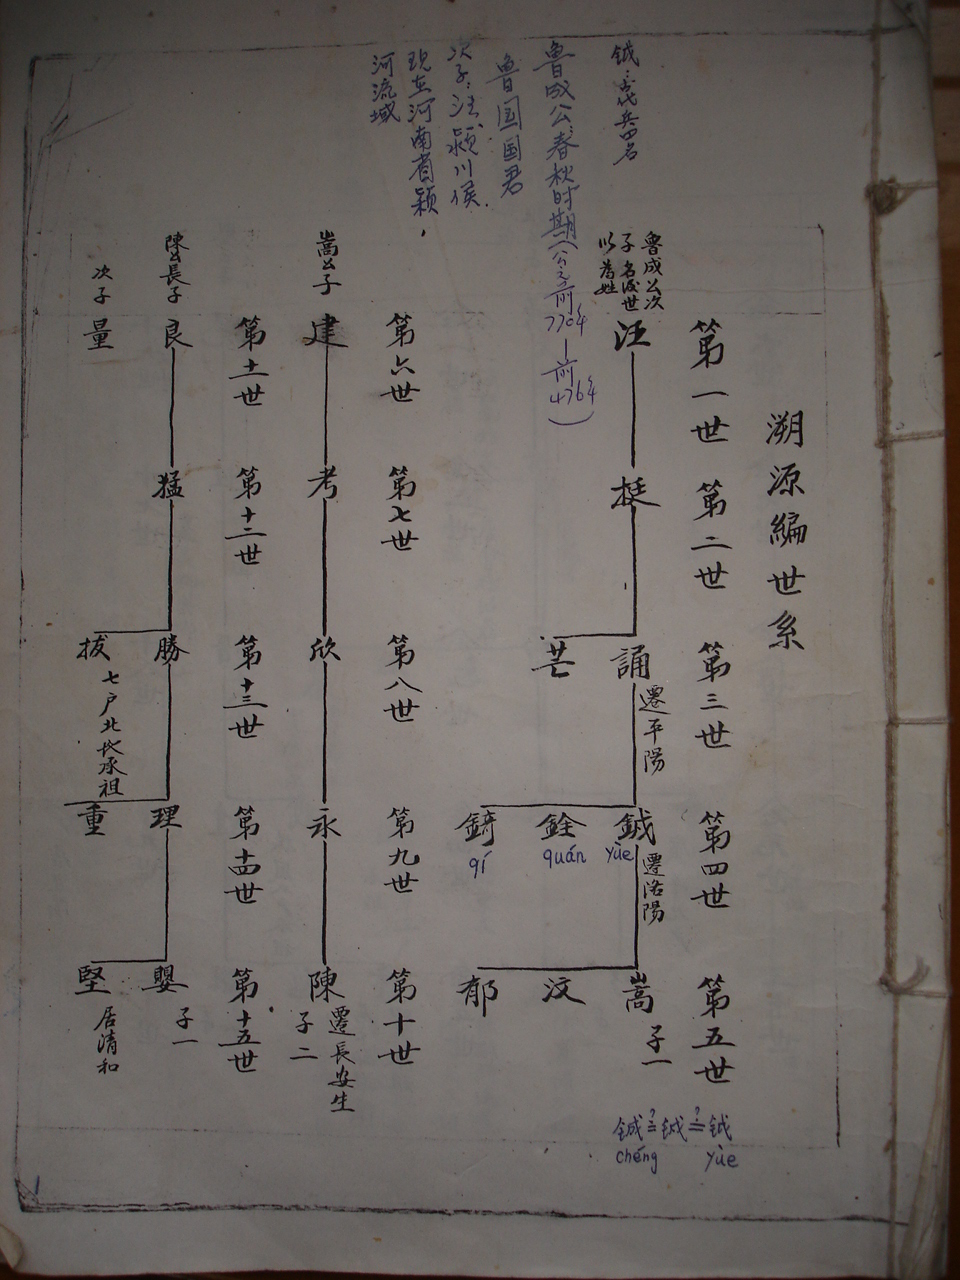 溯源編世系
第一世
第二世
第三世
第四世
第五世
魯成公次
子名後世
以為姓
汪
挺
誦
遷平陽
鉞
yùe
遷洛陽
嵩
子一
芒
銓
quán
汶
錡
qí
郁
第六世
第七世
第八世
第九世
第十世
嵩公子
建
考
欣
永
陳
遷長安生
子二
第十一世
第十二世
第十三世
第十四世
第十五世
陳公長子
良
猛
勝
理
嬰
子一
次子
量
拔
七户北地承祖
重
堅
居清和
鉞：古代兵四名
魯成公春秋时期(公元前770年—前476年)
魯国国君
次子：汪、颍川侯.
现在河南省颖
河流域
鋮?=鉞?=鉞
chéng
yùe
1